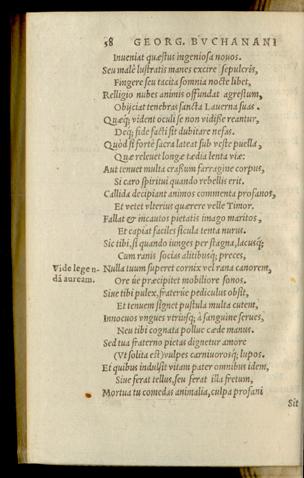 58 GEORG. BVCHANANI
Inueniat quæstus ingeniosa nouos.
Seu malè lustratis manes excire sepulcris,
Fingere seu tacita somnia nocte libet,
Relligio nubes animis offundat agrestum,
Obijciat tenebras sancta Lauerna suas.
Quæq; vident oculi se non vidisse reantur,
Deq; fide facti sit dubitare nefas.
Quòd si fortè sacra lateat sub veste puella,
Quæ releuet longæ tædia lenta viæ:
Aut tenuet multa crassum farragine corpus,
Si caro spiritui quando rebellis erit.
Callida decipiant animos commenta profanos,
Et vetet vlterius quærere velle Timor.
Fallat & incautos pietatis imago maritos,
Et capiat faciles ficula tenta nurus.
Sic tibi, si quando iunges per stagna, lacusq;
Cum ranis socias alitibusq; preces,
Vide legen- Nulla tuum superet cornix vel rana canorem,
dã auream. Ore úe præcipitet mobiliore sonos.
Siue tibi pulex, fraterúe pediculus obsit,
Et tenuem signet pustula multa cutem,
Innocuos vngues vtriusq; à sanguine serues,
Neu tibi cognata polluc cæde manus.
Sed tua fraterno pietas dignetur amore
(Vt solita est) vulpes carniuorosq; lupos.
Et quibus indulsit vitam pater omnibus idem,
Siue ferat tellus, seu ferat illa fretum,
Mortua tu comedas animalia, culpa profani
Sit